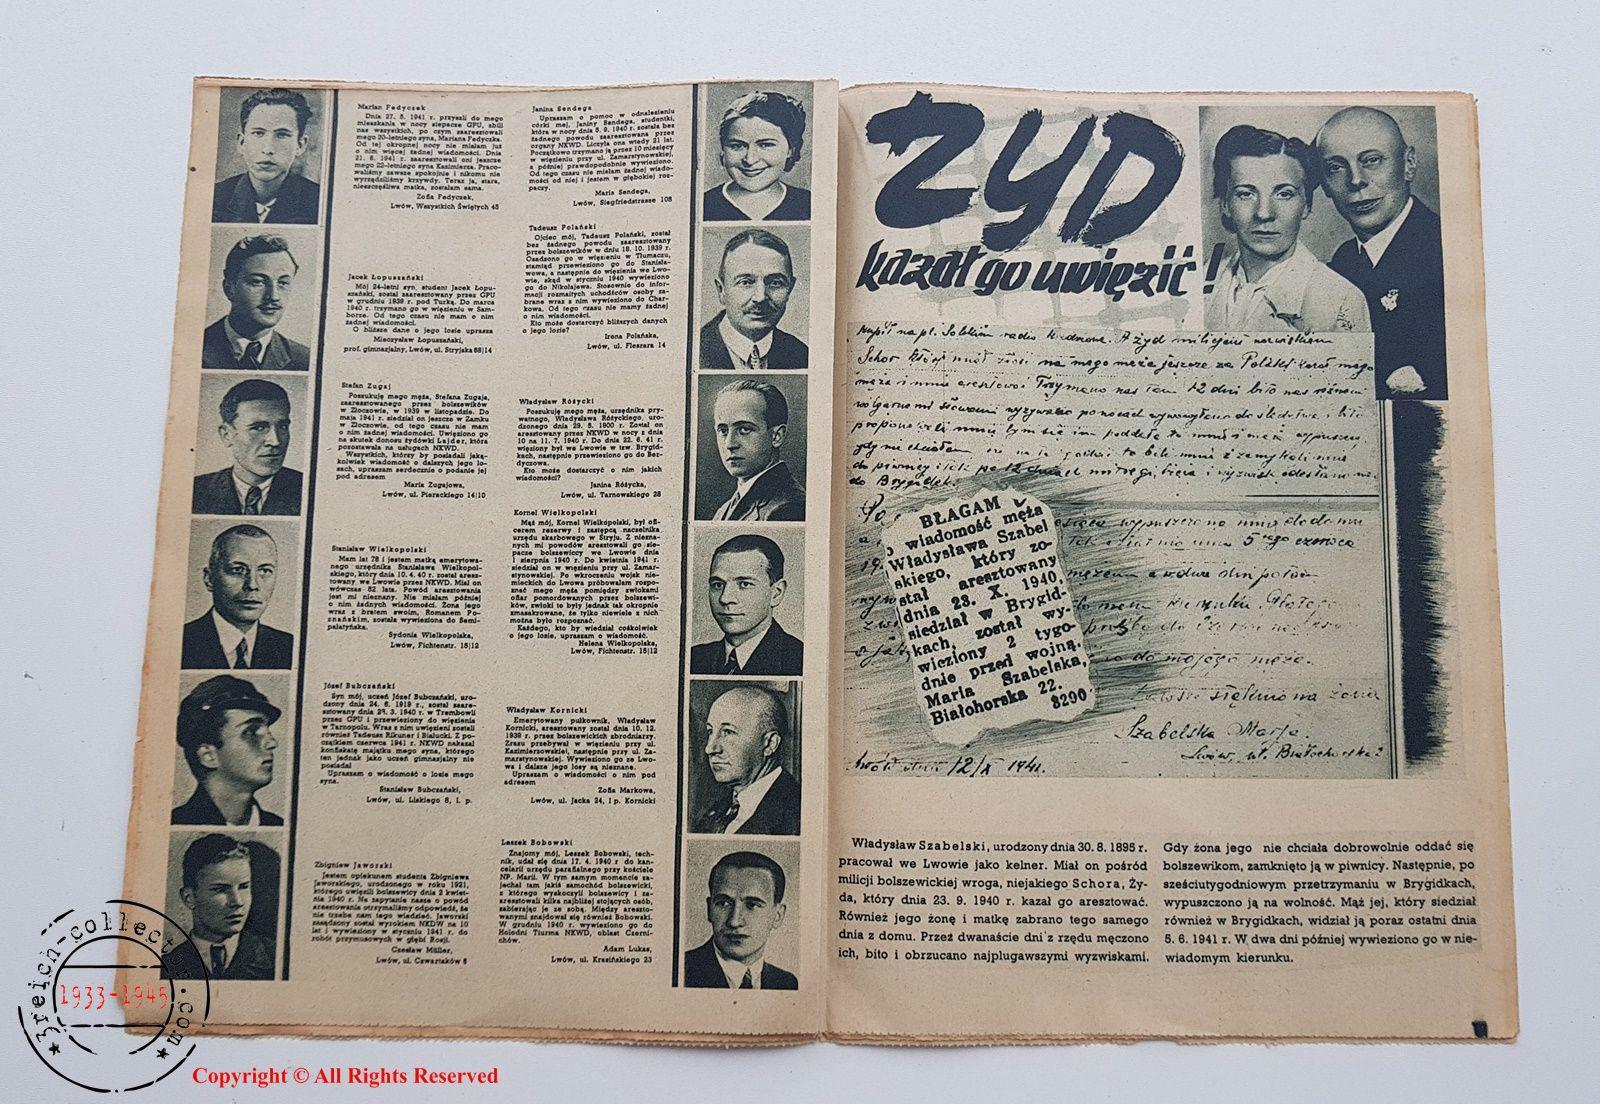 Marian Fedyczek
Dnia 27. 5. 1941 r. przyszli do mego
mieszkania w nocy siepacze GPU, zbili
nas wszystkich, po czym zaaresztowali
mego 20-letniego syna, Mariana Fedyczka.
Od tej okropnej nocy nie miałam już
o nim więcej żadnej wiadomości. Dnia
21. 6. 1941 r. zaaresztowali oni jeszcze
mego 22-letniego syna Kazimierza. Praco-
waliśmy zawsze spokojnie i nikomu nie
wyrządziliśmy krzywdy. Teraz ja, stara,
nieszczęśliwa matka, zostałam sama.
Zofia Fedyczek,
Lwów, Wszystkich Świętych 45
Jacek Łopuszański
Mój 24-letni syn, student Jacek Łopu-
szański, został zaaresztowany przez GPU
w grudniu 1939 r. pod Turką. Do marca
1940 r. trzymano go w więzieniu w Sam-
borze. Od tego czasu nie mam o nim
żadnej wiadomości.
O bliższe dane o jego losie uprasza
Mieczysław Łopuszański,
prof. gimnazjalny, Lwów, ul. Stryjska 68|14
Stefan Zugaj
Poszukuję mego męża, Stefana Zugaja,
zaaresztowanego przez bolszewików
w Złoczowie, w 1939 w listopadzie. Do
maja 1941 r. siedział on jeszcze w Zamku
w Złoczowie, od tego czasu nie mam
o nim żadnej wiadomości. Uwięziono go
na skutek donosu żydówki Lajder, która
pozostawała na usługach NKWD.
Wszystkich, którzy by posiadali jaką-
kolwiek wiadomość o dalszych jego lo-
sach, upraszam serdecznie o podanie jej
pod adresem
Maria Zugajowa,
Lwów, ul. Pierackiego 14|10
Stanisław Wielkopolski
Mam lat 78 i jestem matką emerytowa-
nego urzędnika Stanisława Wielkopol-
skiego, który dnia 10. 4. 40 r. został aresz-
towany we Lwowie przez NKWD. Miał on
wówczas 52 lata. Powód aresztowania
jest mi nieznany. Nie miałam później
o nim żadnych wiadomości. Żona jego
wraz z bratem swoim, Romanem Po-
znańskim, została wywieziona do Semi-
palatyńska.
Sydonia Wielkopolska,
Lwów, Fichtenstr. 15|12
Józef Bubczański
Syn mój, uczeń Józef Bubczański, uro-
dzony 24. 6. 1919 r., został zaare-
sztowany dnia 23. 3. 1940 r. w Trembowli
przez GPU i przewieziony do więzienia
w Tarnopolu. Wraz z nim uwięzieni zostali
również Tadeusz Rikuner i Białucki. Z po-
czątkiem czerwca 1941 r. NKWD nakazał
konfiskatę majątku mego syna, którego
ten jednak jako uczeń gimnazjalny nie
posiadał
Upraszam o wiadomość o losie mego
syna.
Stanisław Bubczański,
Lwów, ul. Liskiego 8, I. p.
Zbigniew Jaworski
Jestem opiekunem studenta Zbigniewa
Jaworskiego, urodzonego w roku 1921,
którego uwięzili bolszewicy dnia 2 kwiet-
nia 1940 r. Na zapytanie nasze o powód
aresztowania otrzymaliśmy odpowiedź, że
nie trzeba nam tego wiedzieć. Jaworski
zasądzony został wyrokiem NKDW na 10
lat i wywieziony w styczniu 1941 r. do
robót przymusowych w głębi Rosji.
Czesław Müller,
Lwów, ul. Czwartaków 6
Janina Sendega
Upraszam o pomoc w odnalezieniu
córki mej, Janiny Sendega, studentki,
która w nocy dnia 5. 9. 1940 r. została bez
żadnego powodu zaaresztowana przez
organy NKWD. Liczyła ona wtedy 21 lat.
Początkowo trzymano ją przez 10 miesięcy
w więzieniu przy ul. Zamarstynowskiej,
a później prawdopodobnie wywieziono.
Od tego czasu nie miałam żadnej wiado-
mości od niej i jestem w głębokiej roz-
paczy.
Maria Sendega,
Lwów, Siegfriedstrasse 108
Tadeusz Polański
Ojciec mój, Tadeusz Polański, został
bez żadnego powodu zaaresztowany
przez bolszewików w dniu 18. 10. 1939 r.
Osadzono go w więzieniu w Tłumaczu,
stamtąd przewieziono go do Stanisła-
wowa, a następnie do więzienia we Lwo-
wie, skąd w styczniu 1940 wywieziono
go do Nikołajewa. Stosownie do infor-
macji rozmaitych uchodźców osoby za-
brane wraz z nim wywieziono do Char-
kowa. Od tego czasu nie mamy żadnej
o nim wiadomości.
Kto może dostarczyć bliższych danych
o jego losie?
Irena Polańska,
Lwów, ul. Fleszara 14
Władysław Różycki
Poszukuję mego męża, urzędnika pry-
watnego, Władysława Różyckiego, uro-
dzonego dnia 29. 5. 1900 r. Został on
aresztowany przez NKWD w nocy z dnia
10 na 11. 7. 1940 r. Do dnia 22. 6. 41 r.
więziony był we Lwowie w tzw. Brygid-
kach, następnie przewieziono go do Ber-
dyczowa.
Kto może dostarczyć o nim jakich
wiadomości?
Janina Różycka,
Lwów, ul. Tarnowskiego 28
Kornel Wielkopolski
Mąż mój, Kornel Wielkopolski, był ofi-
cerem rezerwy i zastępcą naczelnika
urzędu skarbowego w Stryju. Z niezna-
nych mi powodów aresztowali go sie-
pacze bolszewiccy we Lwowie dnia
1 sierpnia 1940 r. Do kwietnia 1941 r.
siedział on w więzieniu przy ul. Zamar-
stynowskiej. Po wkroczeniu wojsk nie-
mieckich do Lwowa próbowałam rozpo-
znać mego męża pomiędzy zwłokami
ofiar pomordowanych przez bolszewi-
ków, zwłoki te były jednak tak okropnie
zmasakrowane, że tylko niewiele z nich
można było rozpoznać.
Każdego, kto by wiedział cośkolwiek
o jego losie, upraszam o wiadomość.
Helena Wielkopolska,
Lwów, Fichtenstr. 15|12
Władysław Kornicki
Emerytowany pułkownik, Władysław
Kornicki, aresztowany został dnia 10. 12.
1939 r. przez bolszewickich zbrodniarzy.
Zrazu przebywał w więzieniu przy ul.
Kazimierzowskiej, następnie przy ul. Za-
marstynowskiej. Wywieziono go ze Lwo-
wa i dalsze jego losy są nieznane.
Upraszam o wiadomości o nim pod
adresem
Zofia Markowa,
Lwów, ul. Jacka 24, I p. Kornicki
Leszek Bobowski
Znajomy mój, Leszek Bobowski, tech-
nik, udał się dnia 17. 4. 1940 r. do kan-
celarii urzędu parafialnego przy kościele
NP. Marii. W tym samym momencie za-
jechał tam jakiś samochód bolszewicki,
z którego wyskoczyli bolszewicy i za-
aresztowali kilka najbliżej stojących osób,
zabierając je ze sobą. Między areszto-
wanymi znajdował się również Bobowski.
W grudniu 1940 r. wywieziono go do
Holodni Tiurma NKWD, oblast Czerni-
chów.
Adam Lukas,
Lwów, ul. Krasińskiego 23
ŻYD
kazał go uwięzić!
kupił na pl. Solskim radio kradzione. A żyd milicjant nazwiskiem
Schor który miał złość na mego męża jeszcze za Polski kazał mego
męża i mnie aresztować Trzymano nas tam 12 dni bito nas różnemi
do Brygidek.
BŁAGAM
o wiadomość męża
Władysława Szabel
skiego, który zo-
stał aresztowany
dnia 23. X. 1940,
siedział w Brygid-
kach, został wy-
wieziony 2 tygo-
dnie przed wojną.
Maria Szabelska,
Białohorska 22.
8290
wypuszczono mnie do domu
5tego czerwca
do mojego męża.
Szabelska Marja.
Lwów, ul. Białohorska 2
Lwów dnia 12/X 1941.
Władysław Szabelski, urodzony dnia 30. 8. 1895 r.
pracował we Lwowie jako kelner. Miał on pośród
milicji bolszewickiej wroga, niejakiego Schora, Ży-
da, który dnia 23. 9. 1940 r. kazał go aresztować.
Również jego żonę i matkę zabrano tego samego
dnia z domu. Przez dwanaście dni z rzędu męczono
ich, bito i obrzucano najplugawszymi wyzwiskami.
Gdy żona jego nie chciała dobrowolnie oddać się
bolszewikom, zamknięto ją w piwnicy. Następnie, po
sześciutygodniowym przetrzymaniu w Brygidkach,
wypuszczono ją na wolność. Mąż jej, który siedział
również w Brygidkach, widział ją poraz ostatni dnia
5. 6. 1941 r. W dwa dni później wywieziono go w nie-
wiadomym kierunku.
3reich-collector.com
1933-1945
Copyright © All Rights Reserved